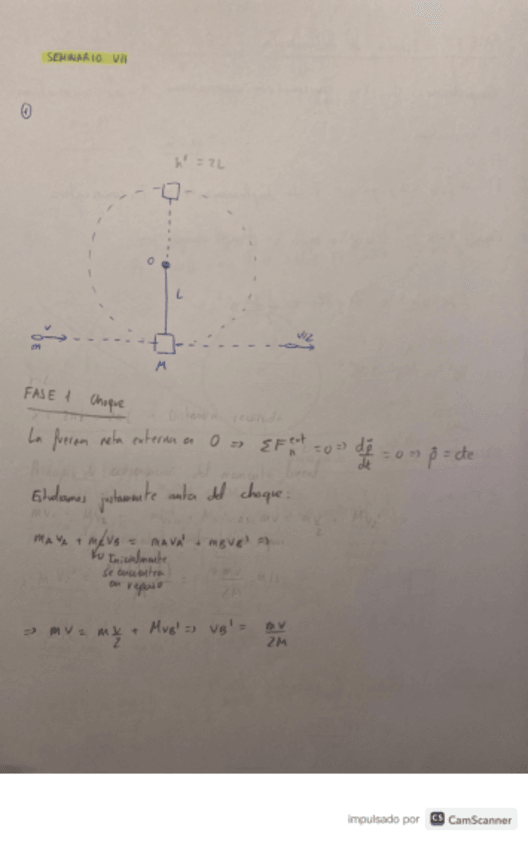 SEMINARIO VII
1
h' = 2L
O
L
v
m
M
v/2
FASE 1 Choque
La fuerza neta externa es 0 => ΣF ext = 0 => dp/dt = 0 => p = cte
Estudiamos justamente antes del choque:
mA vA + mB vB = mA vA' + mB vB' =>
Inicialmente
se encuentra
en reposo
=> mv = m v/2 + M vB' => vB' = mv/2M
impulsado por CS CamScanner